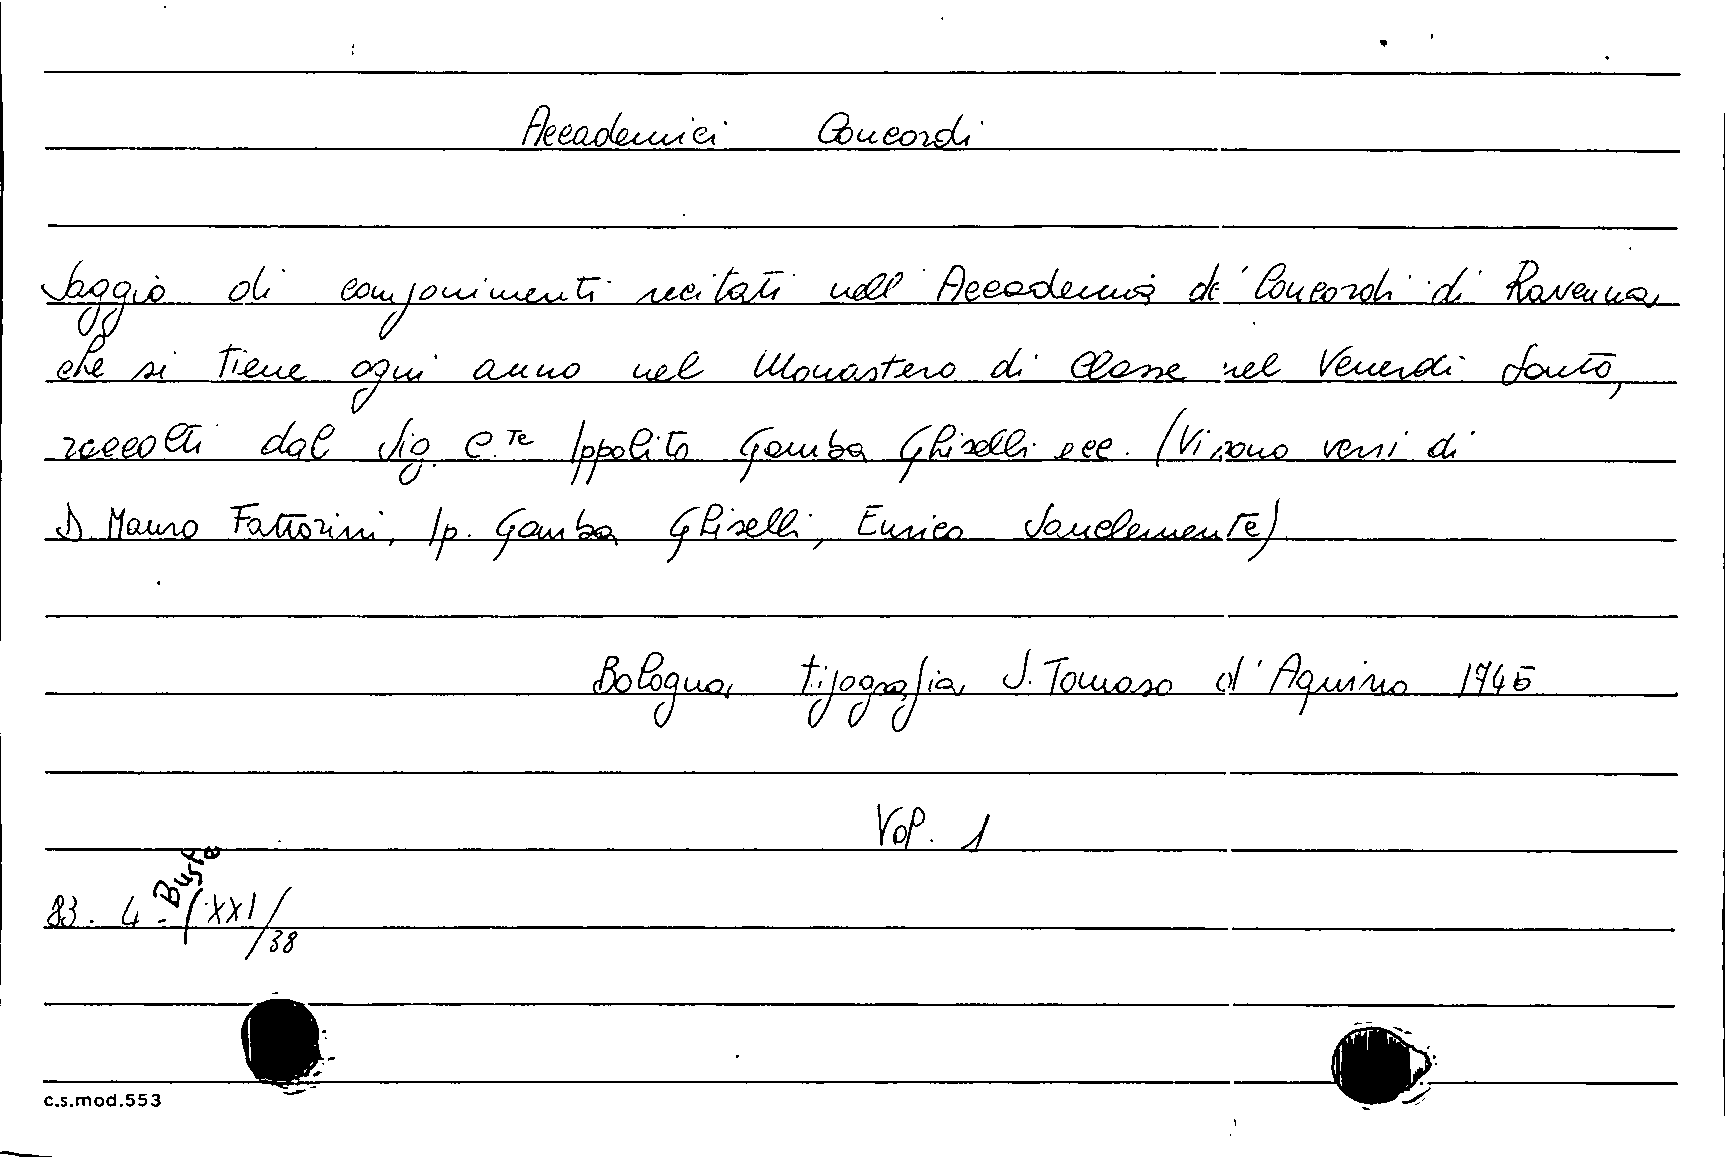 Accademici Concordi
Saggio di componimenti recitati nell'Accademia de' Concordi di Ravenna
che si tiene ogni anno nel Monastero di Classe nel Venerdì Santo,
raccolti dal Sig. C.te Ippolito Gamba Ghiselli ecc. (Vi sono versi di
D. Mauro Fattorini, Ip. Gamba Ghiselli, Enrico Sanclemente)
Bologna tipografia S. Tomaso d'Aquino 1745
Vol. 1
Buste
83. 4. (XXI/38
c.s.mod.553